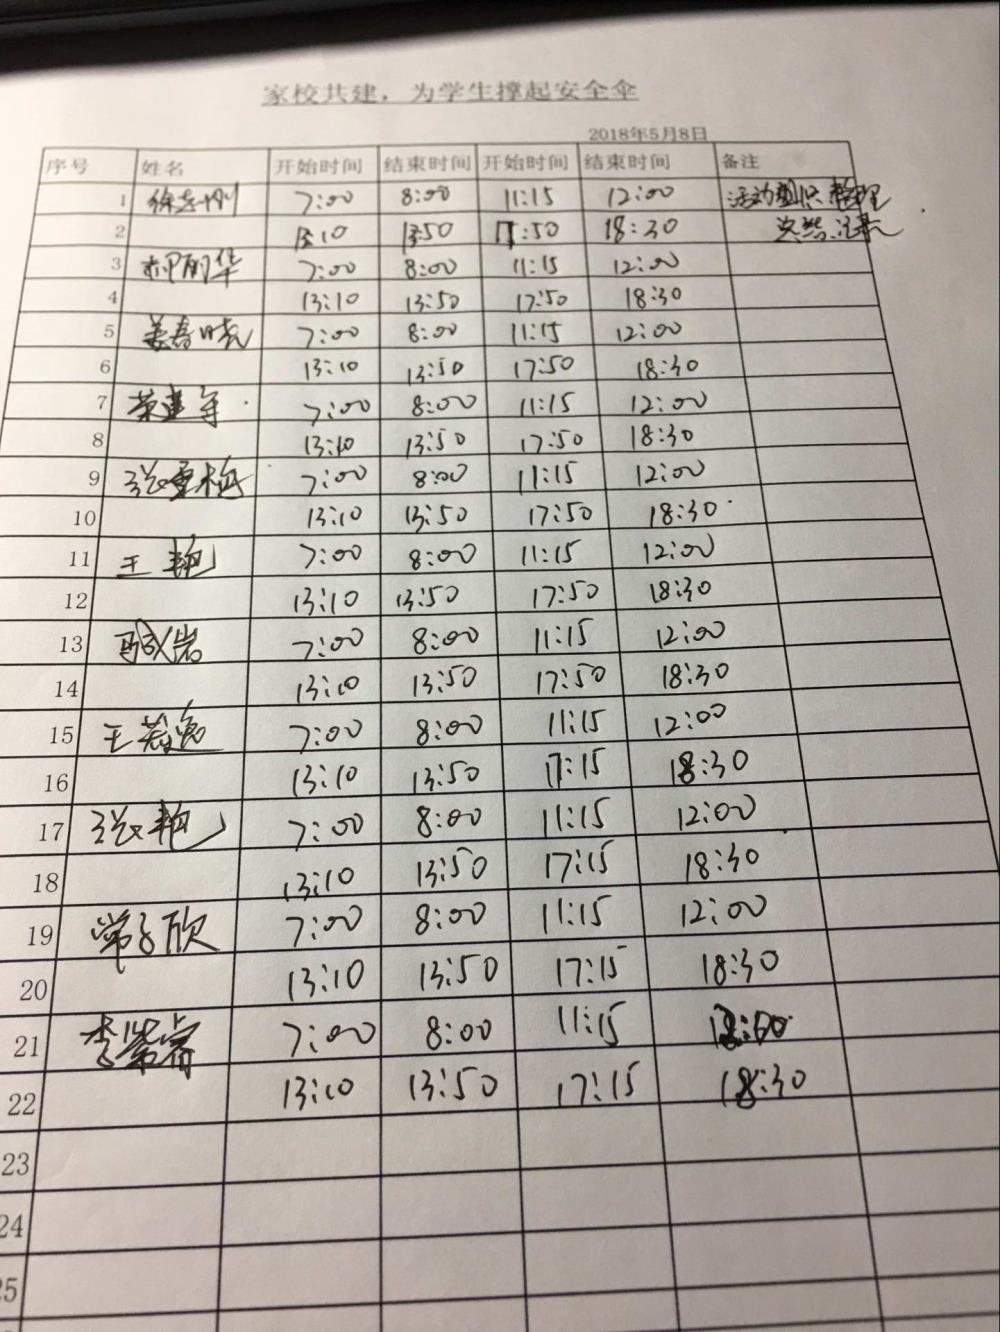 家校共建，为学生撑起安全伞
2018年5月8日
序号 姓名 开始时间 结束时间 开始时间 结束时间 备注
1 徐志刚 7:00 8:00 11:15 12:00 活动组织 整理
2 13:10 13:50 17:50 18:30 总结记录
3 7:00 8:00 11:15 12:00
4 13:10 13:50 17:50 18:30
5 姜春晓 7:00 8:00 11:15 12:00
6 13:10 13:50 17:50 18:30
7 荣建军 7:00 8:00 11:15 12:00
8 13:10 13:50 17:50 18:30
9 张雪梅 7:00 8:00 11:15 12:00
10 13:10 13:50 17:50 18:30
11 王艳 7:00 8:00 11:15 12:00
12 13:10 13:50 17:50 18:30
13 7:00 8:00 11:15 12:00
14 13:10 13:50 17:50 18:30
15 王若逸 7:00 8:00 11:15 12:00
16 13:10 13:50 17:15 18:30
17 张艳 7:00 8:00 11:15 12:00
18 13:10 13:50 17:15 18:30
19 常子欣 7:00 8:00 11:15 12:00
20 13:10 13:50 17:15 18:30
21 李紫睿 7:00 8:00 11:15 12:00
22 13:10 13:50 17:15 18:30
23
24
25